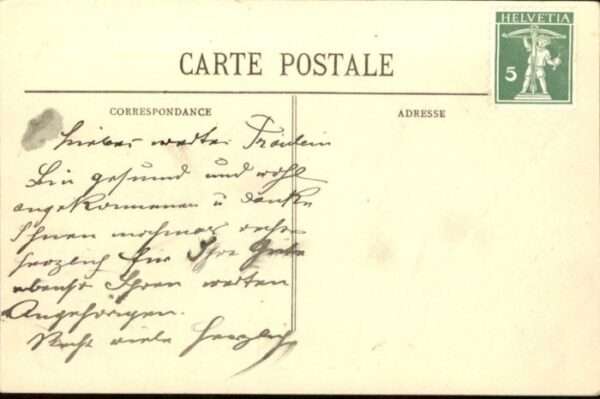 HELVETIA
5
CARTE POSTALE
CORRESPONDANCE
ADRESSE
Liebes wertes Fräulein
Bin gesund und wohl
angekommenen u danke
Ihnen nochmas recht
herzlich für Ihre Güte
ebenso Ihren werten
Angehörigen.
Recht viele herzlich